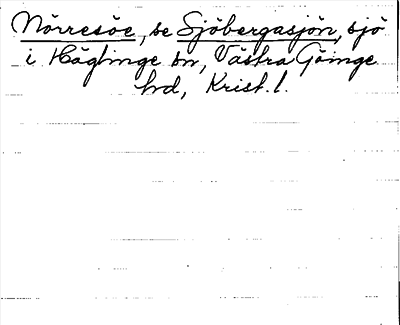 Nörresöe, se Sjöbergasjön, sjö
i Häglinge sn, Västra Göinge
hd, Krist. l.